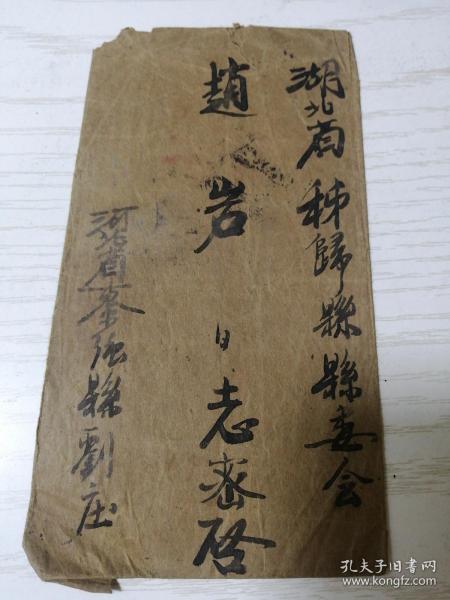 湖北省秭歸縣縣委会
趙岩同志密啓
河北省枣强縣劉庄
孔夫子旧书网
www.kongfz.com